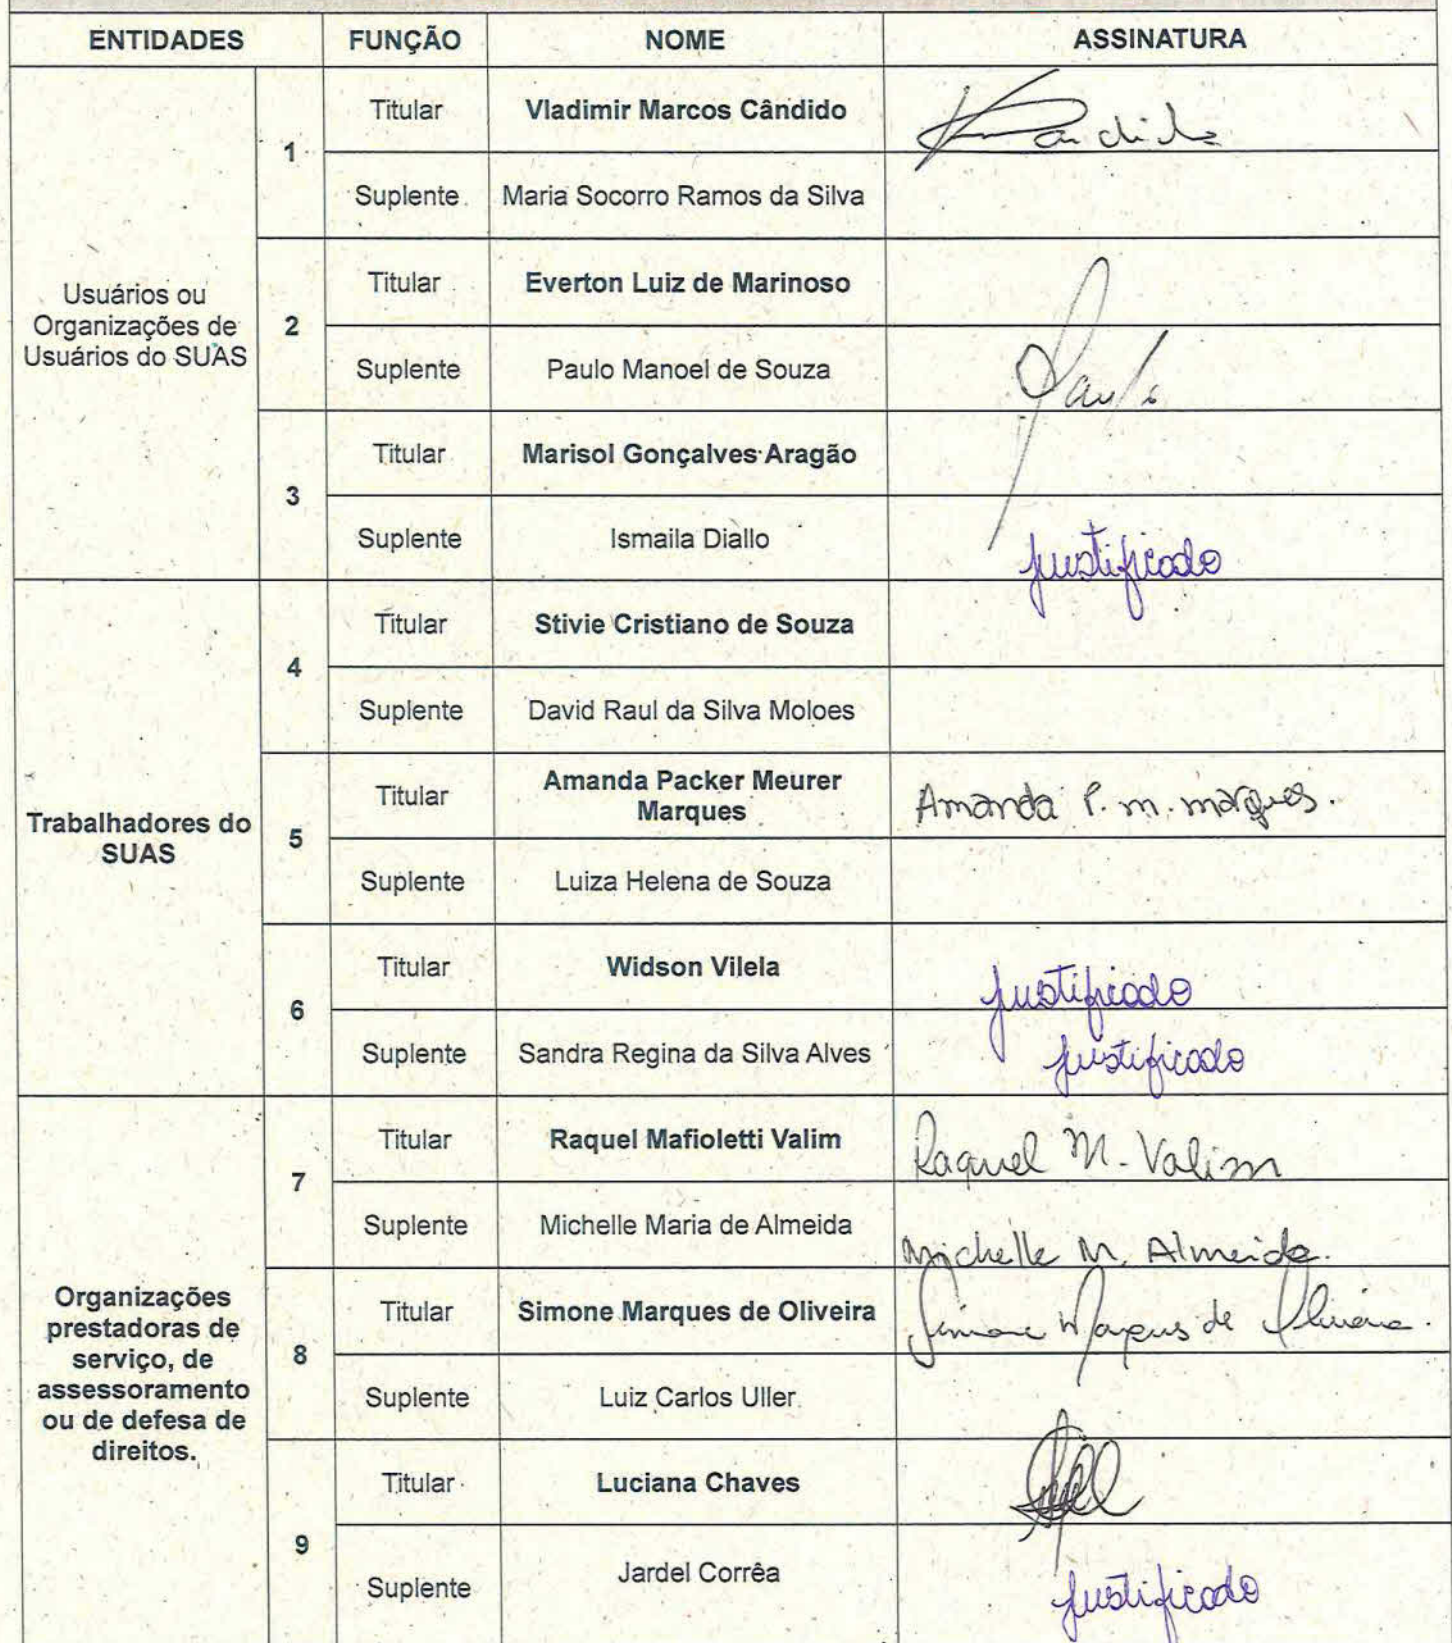 ENTIDADES FUNÇÃO NOME ASSINATURA
Usuários ou
Organizações de
Usuários do SUAS
1
Titular Vladimir Marcos Cândido Candido
Suplente Maria Socorro Ramos da Silva
2
Titular Everton Luiz de Marinoso
Suplente Paulo Manoel de Souza Paulo
3
Titular Marisol Gonçalves Aragão
Suplente Ismaila Diallo justificado
Trabalhadores do
SUAS
4
Titular Stivie Cristiano de Souza
Suplente David Raul da Silva Moloes
5
Titular Amanda Packer Meurer
Marques Amanda P. m. marques.
Suplente Luiza Helena de Souza
6
Titular Widson Vilela justificado
Suplente Sandra Regina da Silva Alves justificado
Organizações
prestadoras de
serviço, de
assessoramento
ou de defesa de
direitos.
7
Titular Raquel Mafioletti Valim Raquel M. Valim
Suplente Michelle Maria de Almeida Michelle M. Almeida.
8
Titular Simone Marques de Oliveira Simone Marques de Oliveira.
Suplente Luiz Carlos Uller
9
Titular Luciana Chaves
Suplente Jardel Corrêa justificado